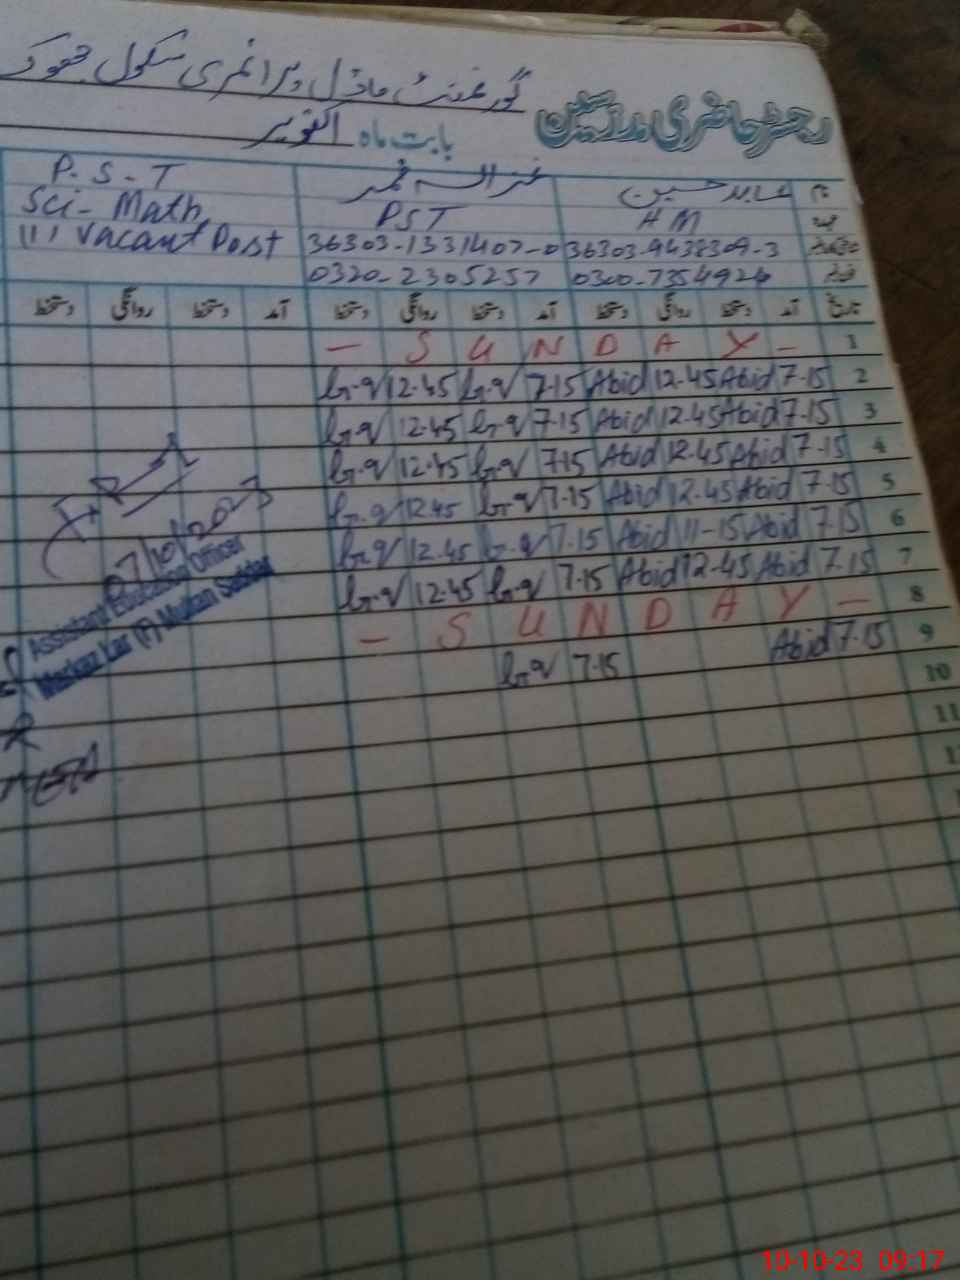 گورنمنٹ ماڈل پرائمری سکول جھوک
رجسٹر حاضری مدرسین
بابت ماہ اکتوبر
نام عابد حسین غزالہ P.S.T
عہدہ HM PST Sci- Math
36303-9438309-3 36303-1331407-0 (1) Vacant Post
0300-7354924 0320-2305257
تاریخ آمد دستخط روانگی دستخط آمد دستخط روانگی دستخط آمد دستخط روانگی دستخط
1 — S U N D A Y —
2 7-15 Abid 12-45 Abid 7-15 12-45
3 7-15 Abid 12-45 Abid 7-15 12-45
4 7-15 Abid 12-45 Abid 7-15 12-45
5 7-15 Abid 12-45 Abid 7-15 12-45
6 7-15 Abid 11-15 Abid 7-15 12-45
7 7-15 Abid 12-45 Abid 7-15 12-45
8 — S U N D A Y —
9 7-15 Abid 7-15
10
11
07/10/2023
Assistant Education Officer
Markaz Lar (F) Multan Saddar
10-10-23 09:17